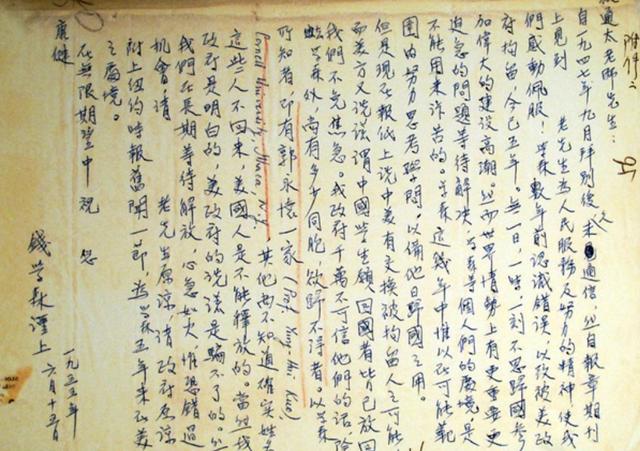 附件二
通太老師先生：
自一九四七年九月拜別後久未通信，然自報章期刊
上見到 老先生為人民服務及努力的精神使我
們感動佩服！學森數年前認識錯誤，以致被美政
府拘留，今已五年。無一日，一時，一刻不思歸國參
加偉大的建設高潮。然而世界情勢上有更重要更
迫急的問題等待解決，學森等個人們的處境是
不能用來訴苦的。學森這幾年中惟以在可能範
圍內努力思考學問，以備他日歸國之用。
但是現在報紙上說中美有交換被拘留人之可能，
而美方又說謊謂中國學生願回國者皆已放回
我們不免焦急。我政府千万不可信他們的話，除
學森外，尚有多少同胞，欲歸不得者。以學森
所知者，即有郭永懷一家（Prof. Yung-huai Kuo,
Cornell University, Ithaca, N.Y.）其他尚不知道確實姓名
這些人不回來，美國人是不能釋放的。當然我
政府是明白的，美政府的說謊是騙不了的。然
我們在長期等待解放，心急如火，惟恐錯過
機會，請 老先生原諒，請政府原諒
附上紐約時報舊聞一節，為學森五年來在美
之處境。
在無限期望中祝您
康健
錢學森謹上
一九五五年
六月十五日